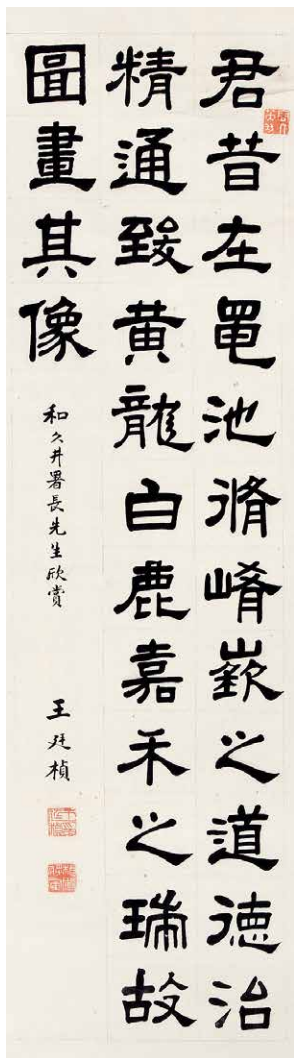 君昔在黽池脩崤嶔之道德治
精通致黄龍白鹿嘉禾之瑞故
圖畫其像
和久井署長先生欣賞
王廷楨